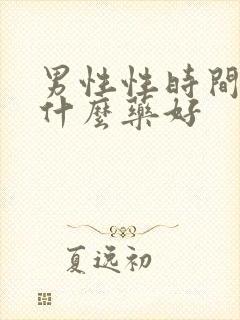 男性性時間
什麼藥好
夏逸初